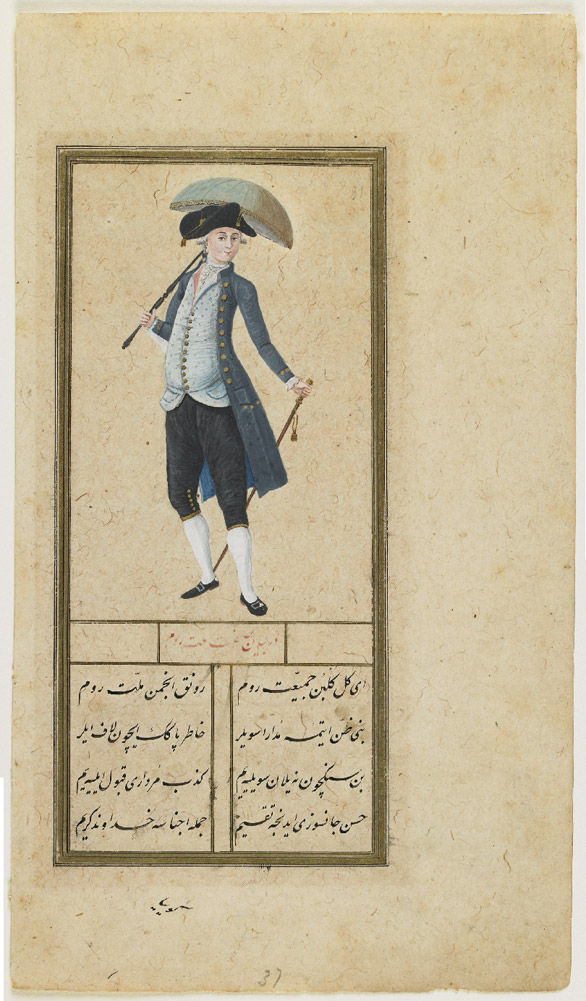 در بیان ملت روم
ای گل گلبن جمعیت روم رونق انجمن ملت روم
بنی ظن ایتمه مدارا سویلر خاطر پاكك ایچون لاف ایلر
بن سنكچون نه یلان سویلیه‌یم كذب مرداری قبول ایلیه‌یم
حسن جانسوزی ایدنجه تقسیم جمله اجناسه خداوند كریم
37